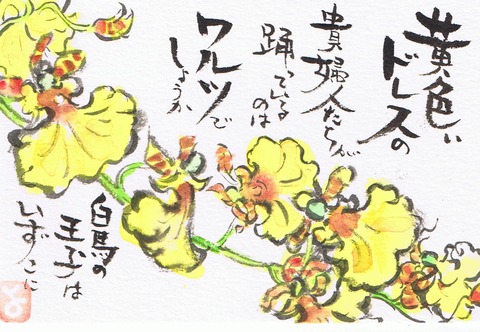 黄色い
ドレスの
貴婦人たちが
踊っている
のは
ワルツで
しょうか
白馬の
王子は
いずこに